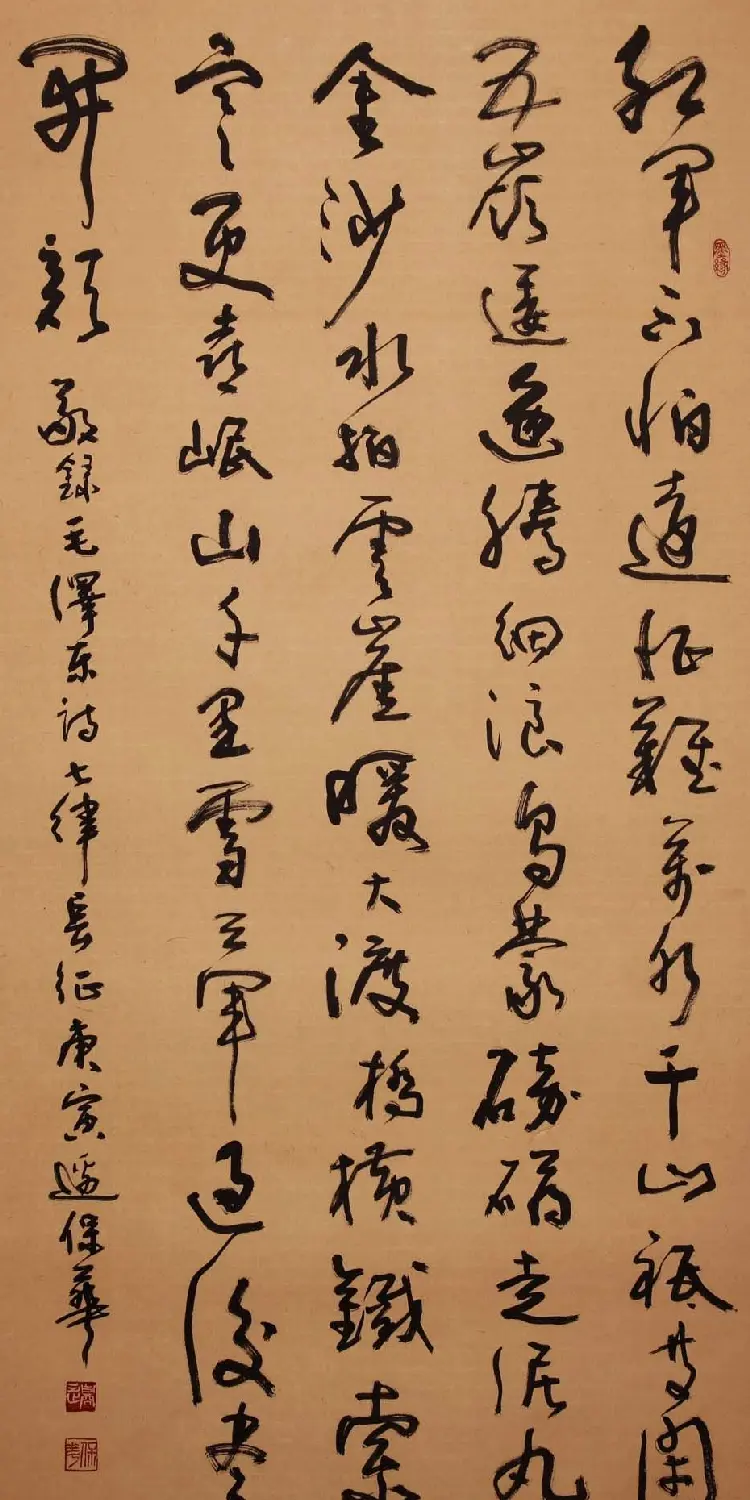 紅軍不怕遠征難萬水千山祇等閑
五嶺逶迤騰細浪烏蒙磅礴走泥丸
金沙水拍雲崖暖大渡橋橫鐵索
寒更喜岷山千里雪三軍過後盡
開顏
敬錄毛澤東詩七律長征庚寅邊保華